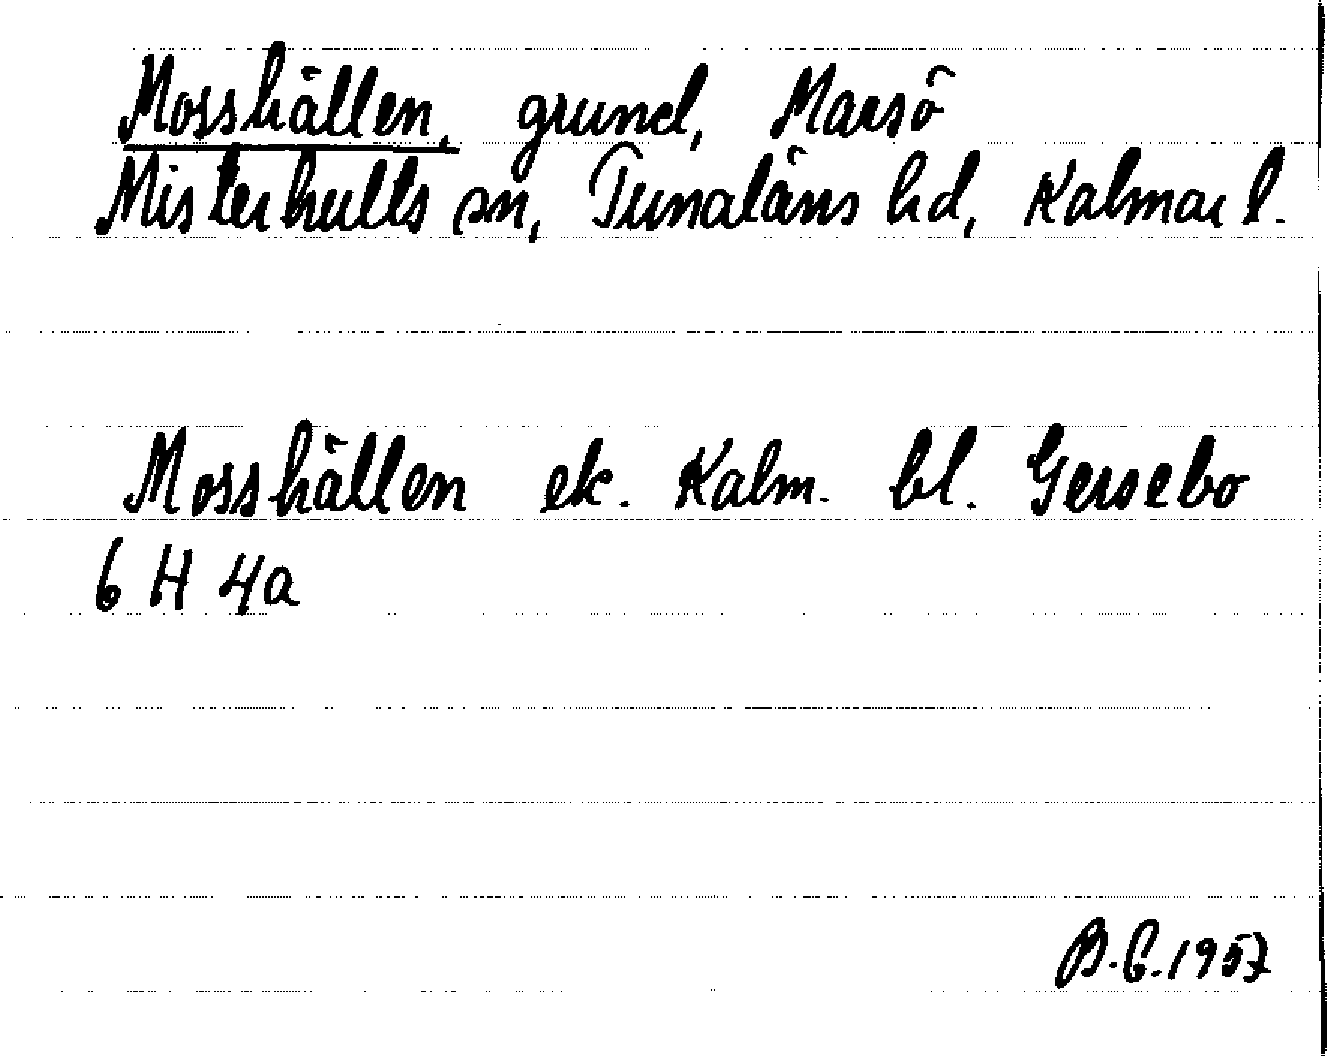 Mosshällen, grund, Marsö
Misterhults sn, Tunaläns hd, Kalmar l.
Mosshällen ek. Kalm. bl. Gersebo
6 H 4a
B.G. 1957